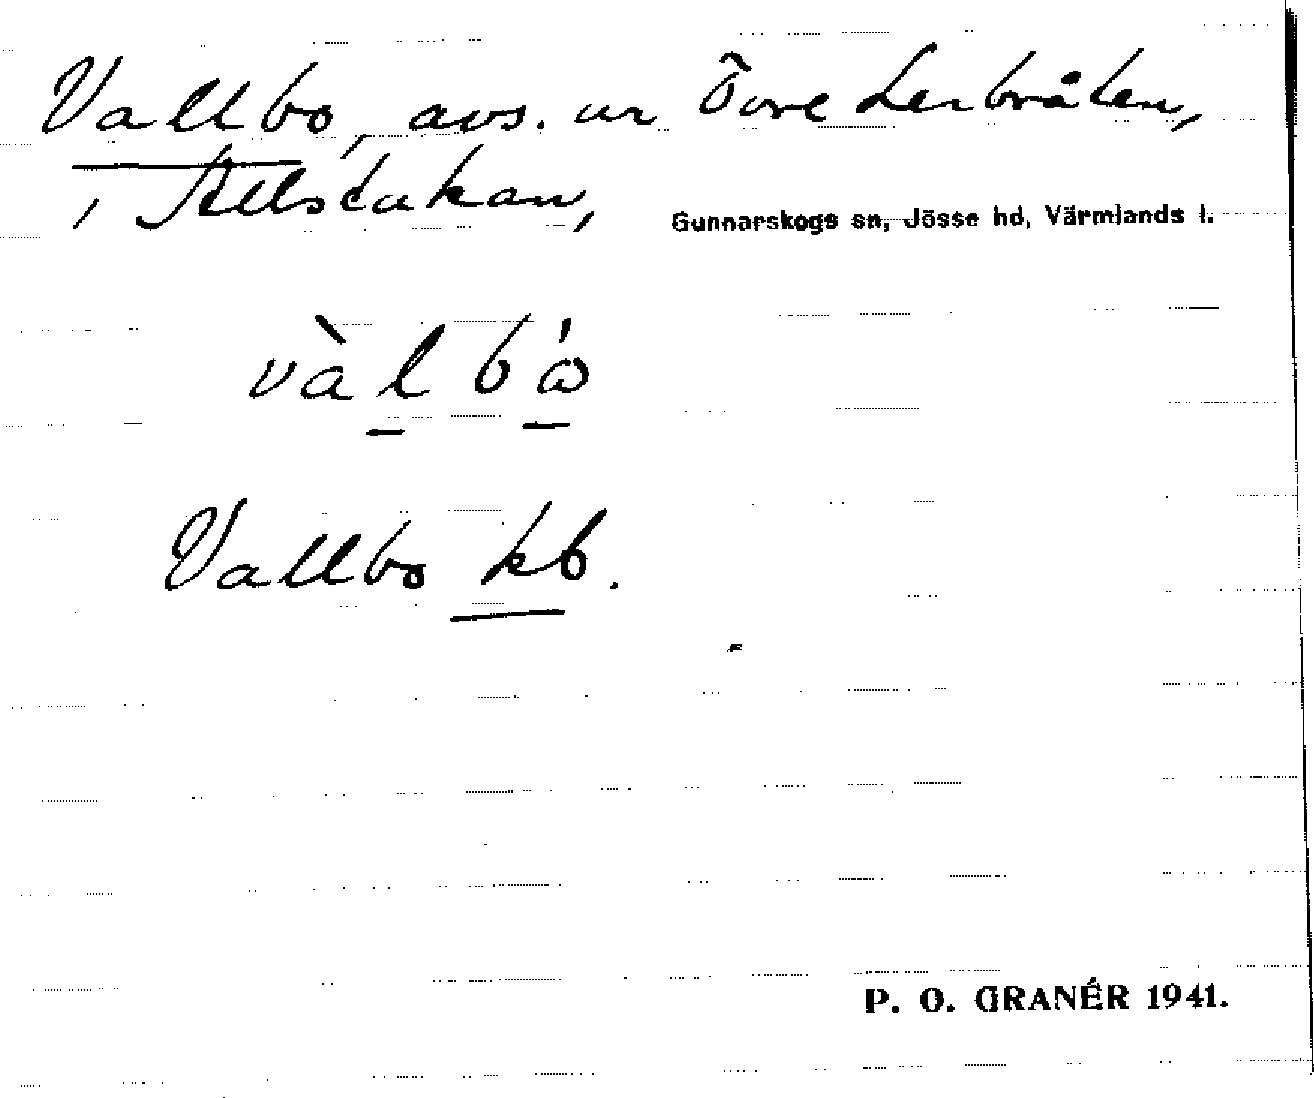 Vallbo, avs. ur Övre Lerbråten,
i Stelstakan, Gunnarskogs sn, Jösse hd, Värmlands l.
vàl bɷ́
Vallbo kb.
P. O. GRANÉR 1941.